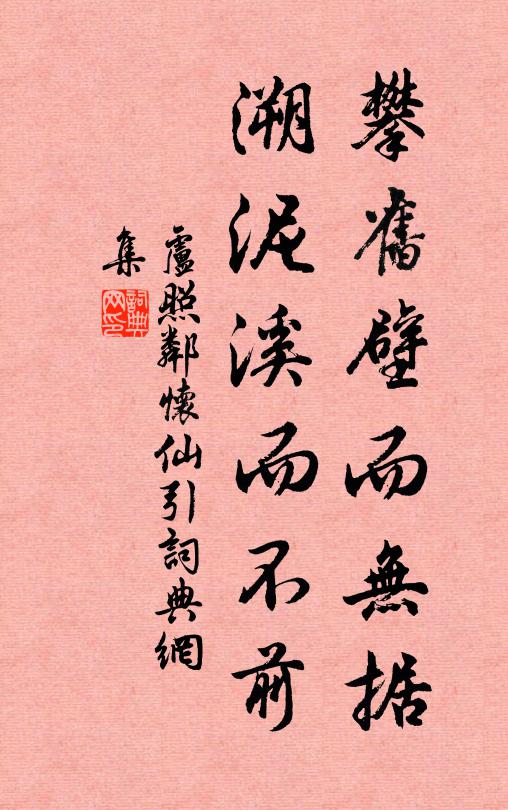 攀舊壁而無据
溯泥溪而不前
盧照鄰懷仙引詞典網
集
詞典
网印